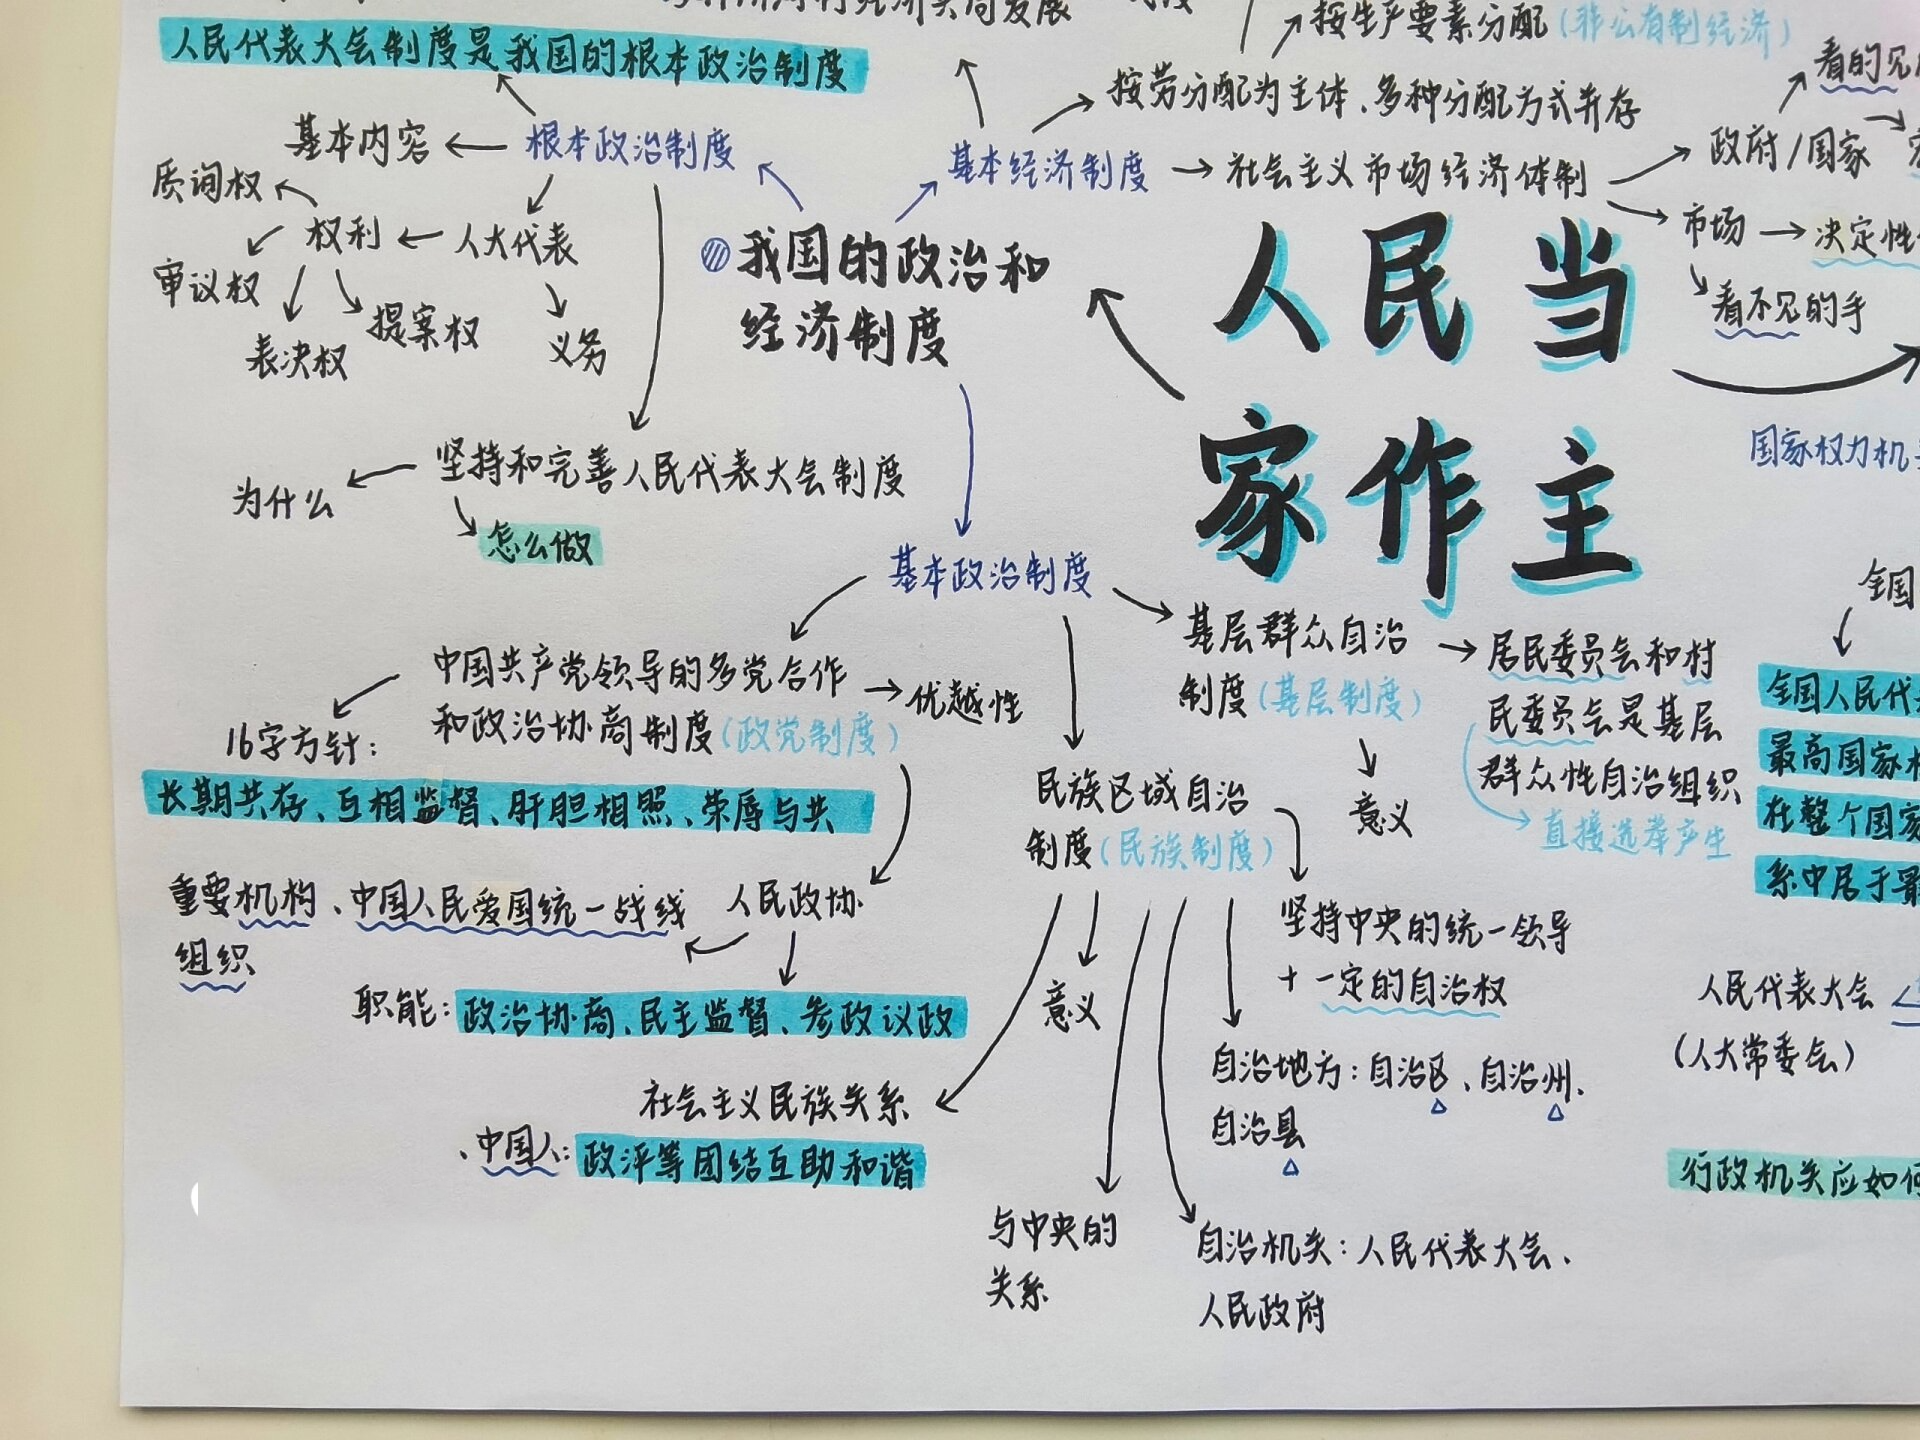 人民代表大会制度是我国的根本政治制度
基本内容
根本政治制度
质询权
权利
人大代表
审议权
表决权
提案权
义务
我国的政治和
经济制度
为什么
坚持和完善人民代表大会制度
怎么做
按生产要素分配(非公有制经济)
按劳分配为主体、多种分配方式并存
基本经济制度
社会主义市场经济体制
看的见
政府/国家
市场
决定性
看不见的手
人民当
家作主
国家权力机
基本政治制度
中国共产党领导的多党合作
和政治协商制度(政党制度)
优越性
16字方针:
长期共存、互相监督、肝胆相照、荣辱与共
重要机构、中国人民爱国统一战线
组织
人民政协
职能:政治协商、民主监督、参政议政
社会主义民族关系
、中国人:政评等团结互助和谐
基层群众自治
制度(基层制度)
意义
居民委员会和村
民委员会是基层
群众性自治组织
直接选举产生
民族区域自治
制度(民族制度)
意义
坚持中央的统一领导
+一定的自治权
自治地方:自治区、自治州、
自治县
与中央的
关系
自治机关:人民代表大会、
人民政府
全国
全国人民代
最高国家
在整个国家
系中居于最
人民代表大会
(人大常委会)
行政机关应如何